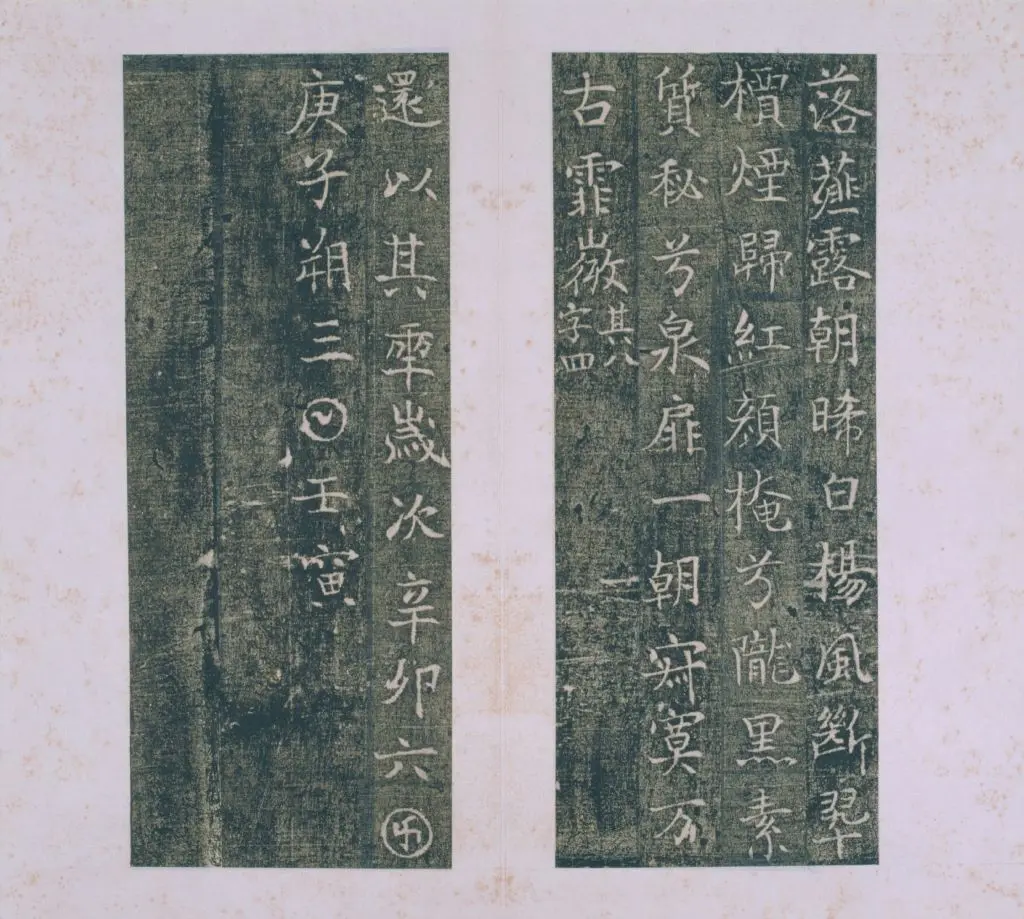 落薤露朝晞白楊風斷翠
檟煙歸紅顏掩兮隴黑素
質秘兮泉扉一朝寂寞万
古霏微其八
字四
還以其𠡦歲次辛卯六囝
庚子朔三𡆠壬寅